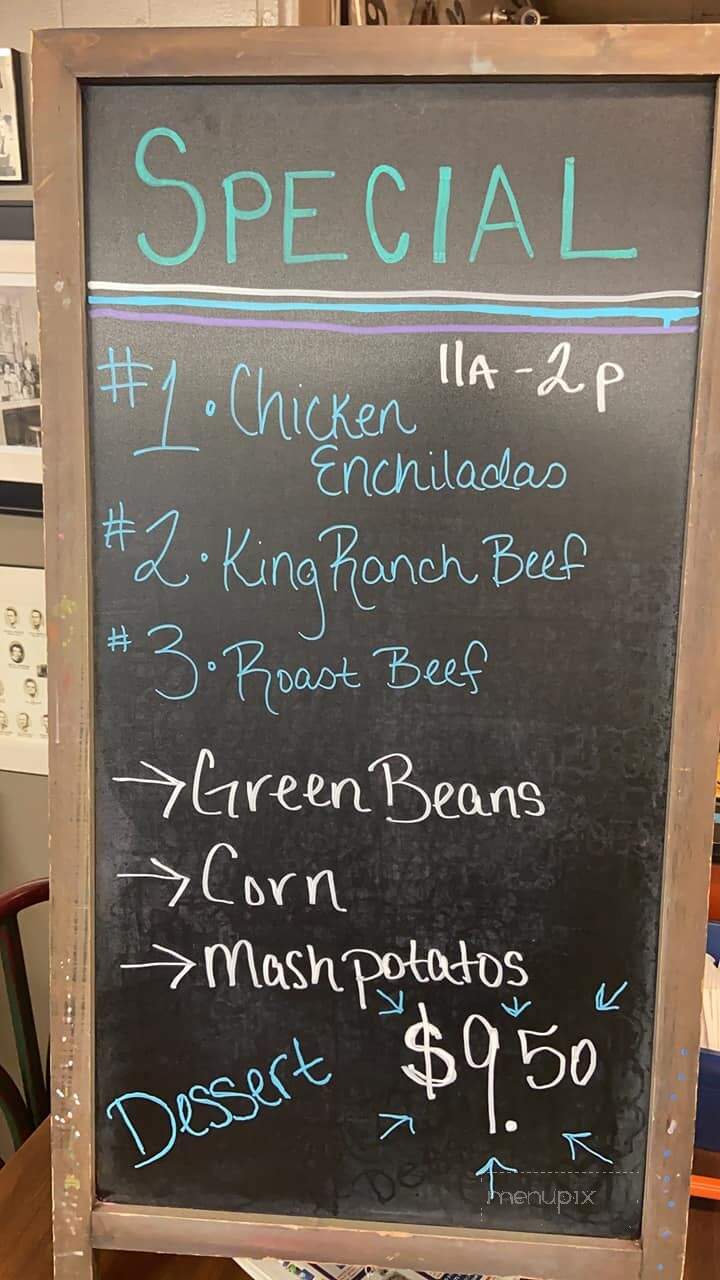 SPECIAL
11A - 2P
#1. Chicken
Enchiladas
#2. King Ranch Beef
#3. Roast Beef
→ Green Beans
→ Corn
→ Mash potatos
$9.50
Dessert
menupix